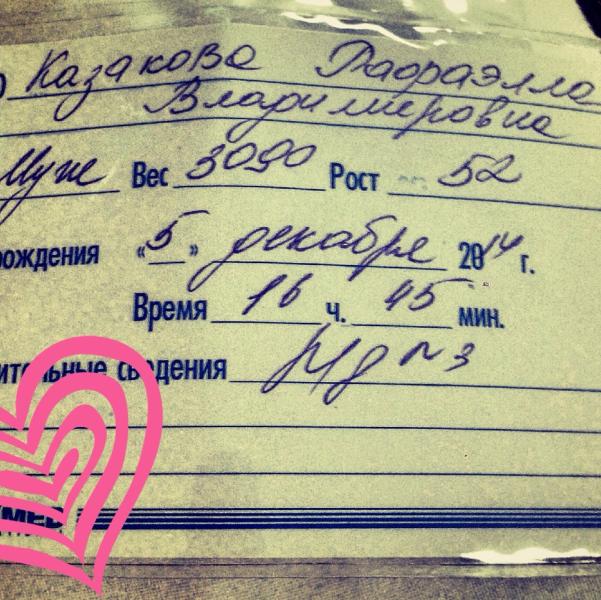 Казакова Рафаэлла
Владимировна
Муж Вес 3090 Рост 52
рождения «5» декабря 2014 г.
Время 16 ч. 45 мин.
ительные сведения